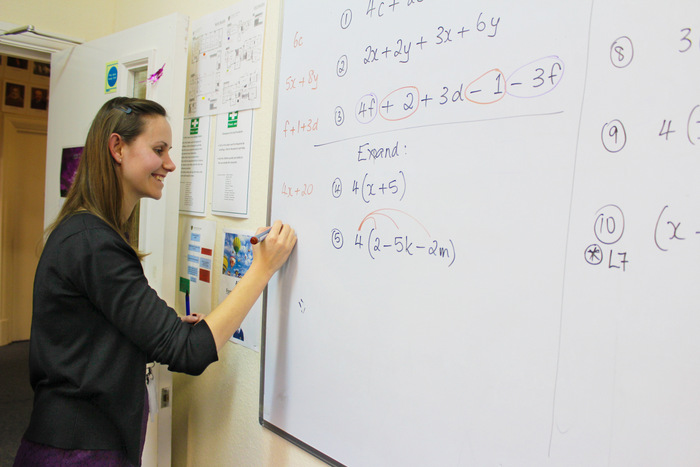 ① 4c +
6c
② 2x + 2y + 3x + 6y
5x + 8y
③ 4f + 2 + 3d - 1 - 3f
f + 1 + 3d
Expand:
④ 4(x + 5)
4x + 20
⑤ 4(2 - 5k - 2m)
⑧ 3
⑨ 4(
⑩ (x -
* L7